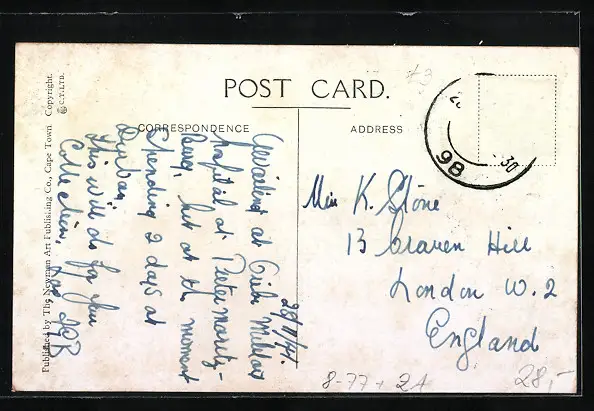 POST CARD.
CORRESPONDENCE
ADDRESS
Published by The Newman Art Publishing Co., Cape Town Copyright.
© C.T.LTD.
28/11/41.
at
hospital at Peter Moritz-
Burg, but at the moment
Spending 2 days at
Durban
This will do for your
Collection.
Miss K. Stone
13 Craven Hill
London W. 2
England
98
30
8-77 + 2A
28,-